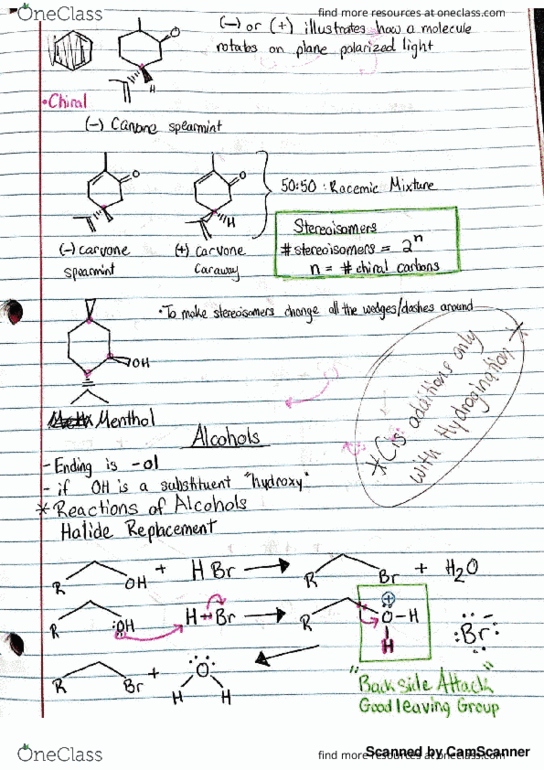 OneClass
find more resources at oneclass.com
(-) or (+) illustrates how a molecule
rotates on plane polarized light
O
H
• Chiral
(-) Carvone spearmint
O
O
H
50:50 : Racemic Mixture
(-) carvone
spearmint
(+) carvone
Caraway
Stereoisomers
# stereoisomers = 2ⁿ
n = # chiral carbons
• To make stereoisomers change all the wedges/dashes around
OH
Menthol
* Cis additions only
with Hydrogination *
Alcohols
- Ending is -ol
- if OH is a substituent "hydroxy"
* Reactions of Alcohols
Halide Replacement
R OH + H Br → R Br + H₂O
R OH H-Br → R O-H H :Br:⁻
R Br + O H H
"Back side Attack"
Good leaving Group
OneClass
find more resources at oneclass.com
Scanned by CamScanner